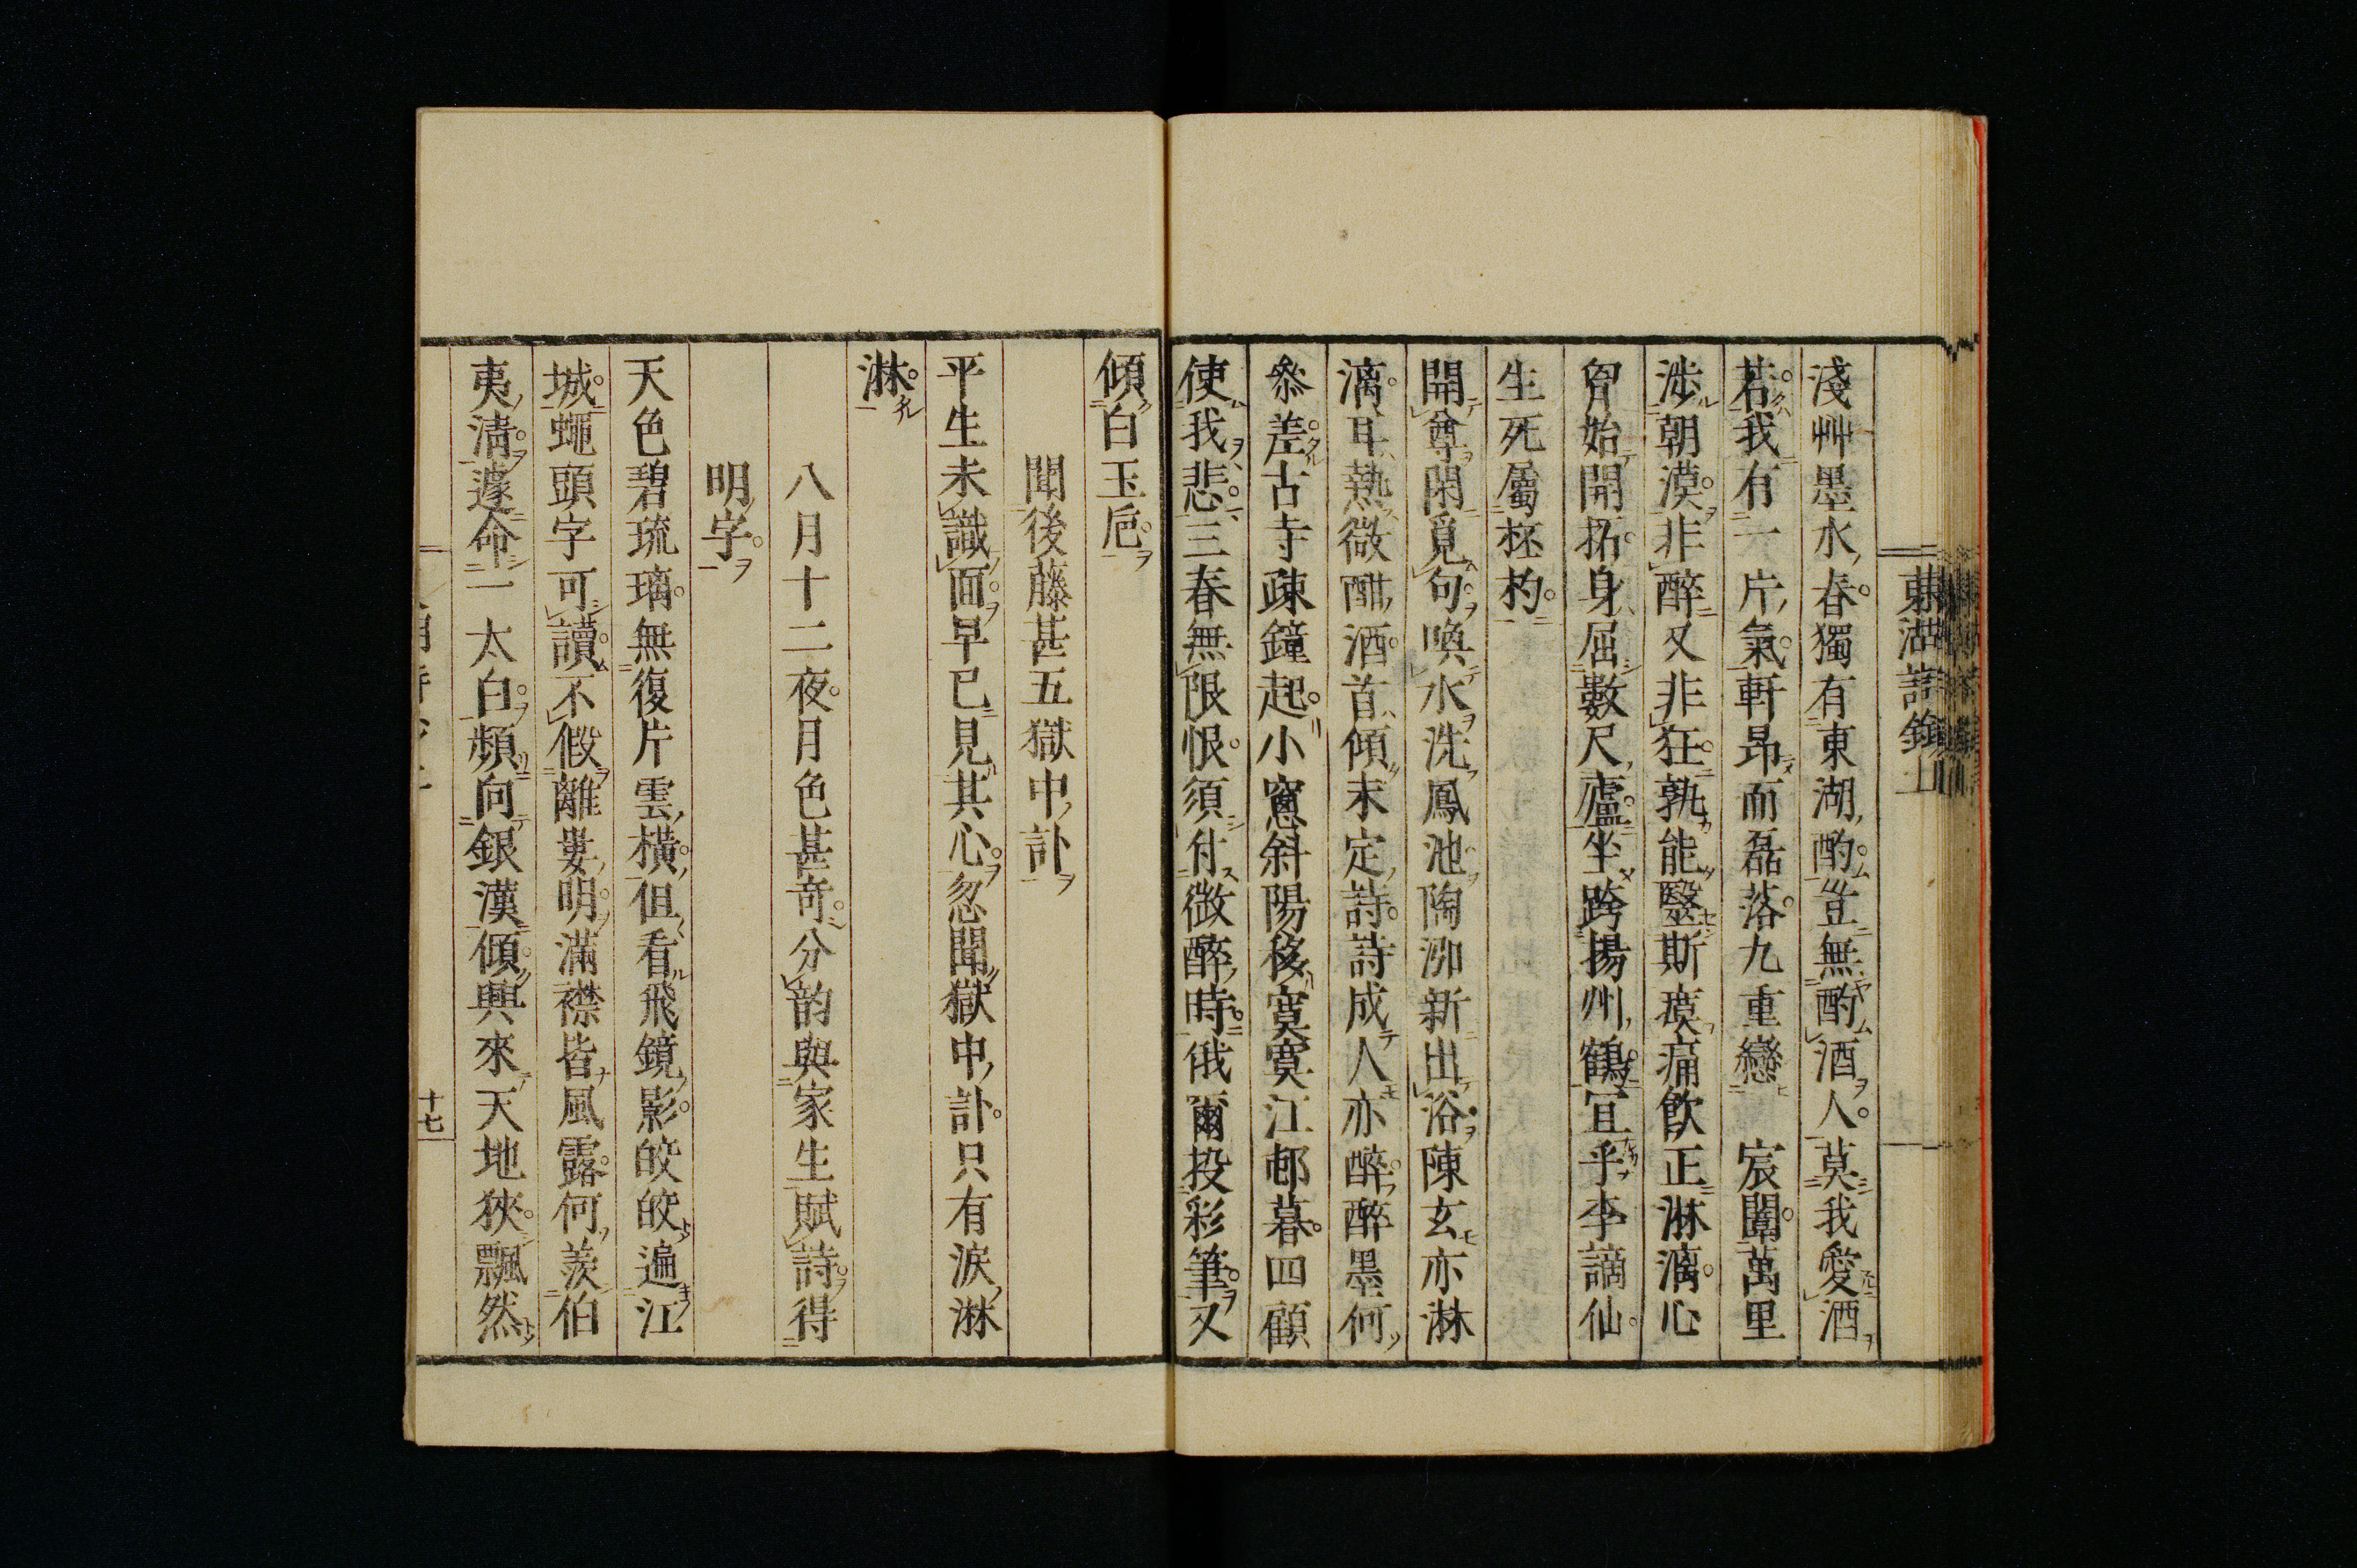 東湖詩鈔 上
淺艸墨水春獨有東湖酌豈無酌酒人莫我愛酒
若我有一片氣軒昂而磊落九重戀 宸闈萬里
渉朝漠非醉又非狂孰能醫斯瘼痛飮正淋漓心
胷始開拓身屈數尺廬坐跨揚州鶴冝乎李謫仙
生死屬杯杓
開尊閑覓句喚水洗鳳池陶泓新出浴陳玄亦淋
漓耳熱微酣酒首傾未定詩詩成人亦醉醉墨何
叅差古寺疎鐘起小窻斜陽移寞寞江邨暮四顧
使我悲三春無限恨須付微醉時俄爾投彩筆又
傾白玉巵
聞後藤甚五獄中訃
平生未識面早已見其心忽聞獄中訃只有涙淋
淋
八月十二夜月色甚竒分韵與家生賦詩得
明字
天色碧琉璃無復片雲橫但看飛鏡影皎皎遍江
城蠅頭字可讀不假離婁明滿襟皆風露何羨伯
夷淸遽命一太白頻向銀漢傾興來天地狹飄然
十七